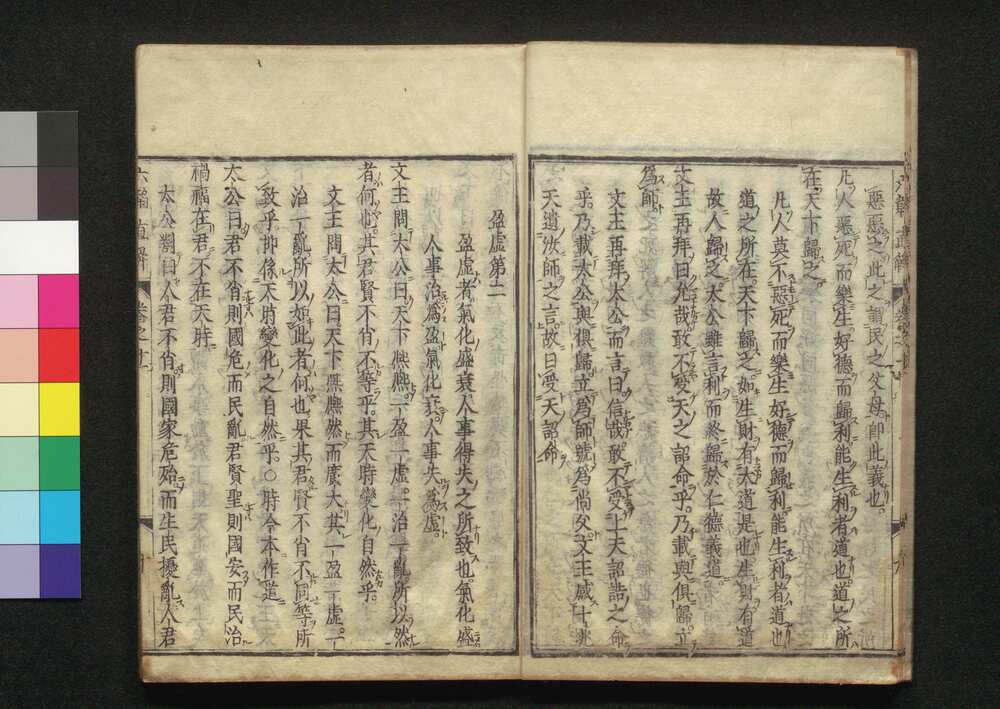 惡惡之此之謂民之父母即此義也
凡人惡死而樂生好德而歸利能生利者道也道之所
在天下歸之
凡人莫不惡死而樂生好德而歸利能生利者道也
道之所在天下歸之如生財有大道是也生財有道
故人歸之太公雖言利而終歸於仁德義道
文王再拜曰允哉敢不受天之詔命乎乃載與俱歸立
爲師
文王再拜太公而言曰信哉敢不受上天詔誥之命
乎乃載太公與俱歸立爲師號爲尚父文王感卜兆
天遺汝師之言故曰受天詔命
盈虛第二
盈虛者氣化盛衰人事得失之所致也氣化盛
人事治爲盈氣化衰人事失爲虛
文王問太公曰天下熈熈一盈一虛一治一亂所以然
者何也其君賢不肖不等乎其天時變化自然乎
文王問太公曰天下熈熈然而廣大其一盈一虛一
治一亂所以如此者何也果其君賢不肖不同等所
致乎抑係天時變化之自然乎○時今本作道
太公曰君不肖則國危而民亂君賢聖則國安而民治
禍福在君不在天時
太公對曰人君不肖則國家危殆而生民擾亂人君
六韜直解